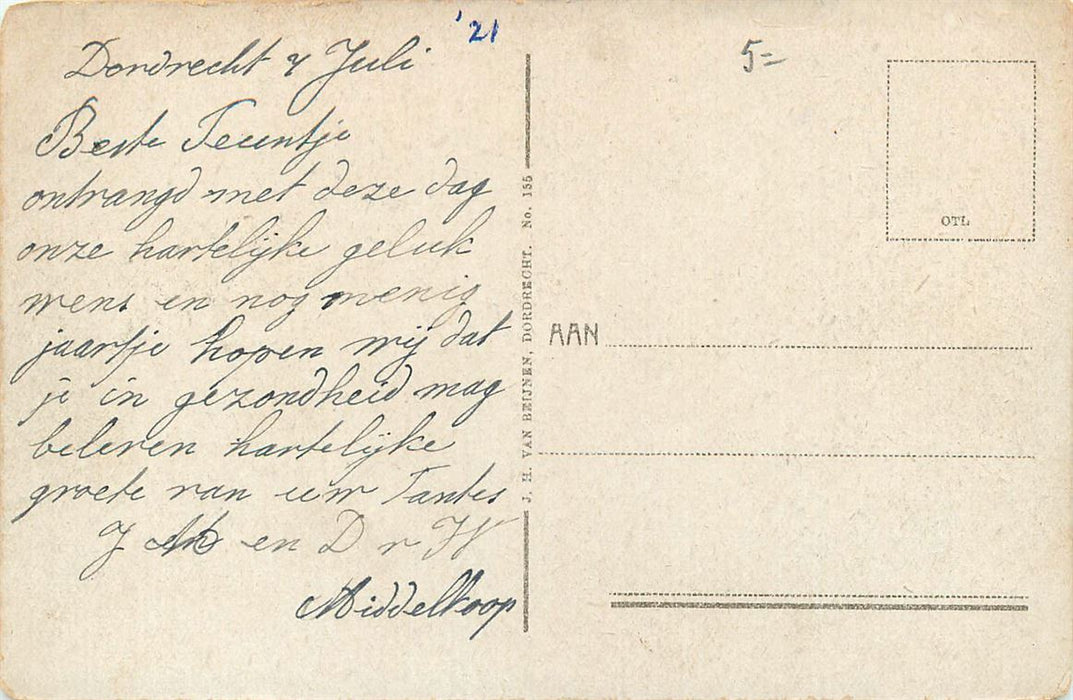 '21
Dordrecht 4 Juli
Beste Teuntje
ontvangd met deze dag
onze hartelijke geluk
wens en nog menig
jaartje hopen wij dat
je in gezondheid mag
beleven hartelijke
groete van uw Tantes
J en D v W
Middelkoop
J. H. VAN BEIJNEN, DORDRECHT. No. 155
5=
OTL
AAN